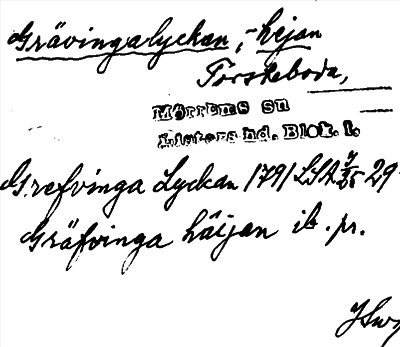 Grävingalyckan, -hejan
Torskeboda,
Mörrums sn
Listers hd. Blek. l.
Grefvinga Lyckan 1791 LSA 29
Gräfvinga häijan ib. pr.